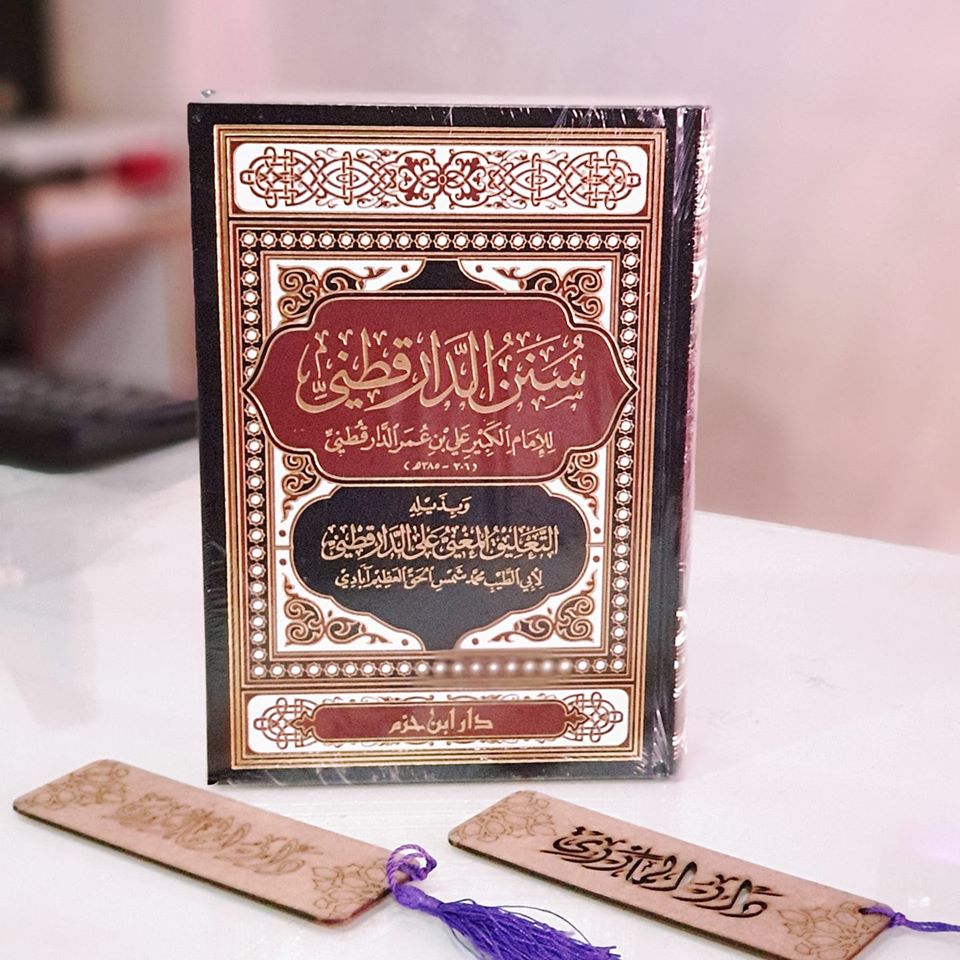 سُنَنُ الدَّارقُطنِيِّ
لِلإمَام الكَبِيْر عَلِي بْنِ عُمَر الدَّارقُطنِيِّ
(٣٠٦ - ٣٨٥هـ)
وَبذَيْلِهِ
التَّعْلِيْقُ المُغْنِي عَلَى الدَّارقُطْنِيِّ
لِأبِي الطَّيِّبِ مُحَمَّد شَمْسِ الحَقِّ العَظِيْم آبَادِيْ
دار ابن حزم
دار الماوردي